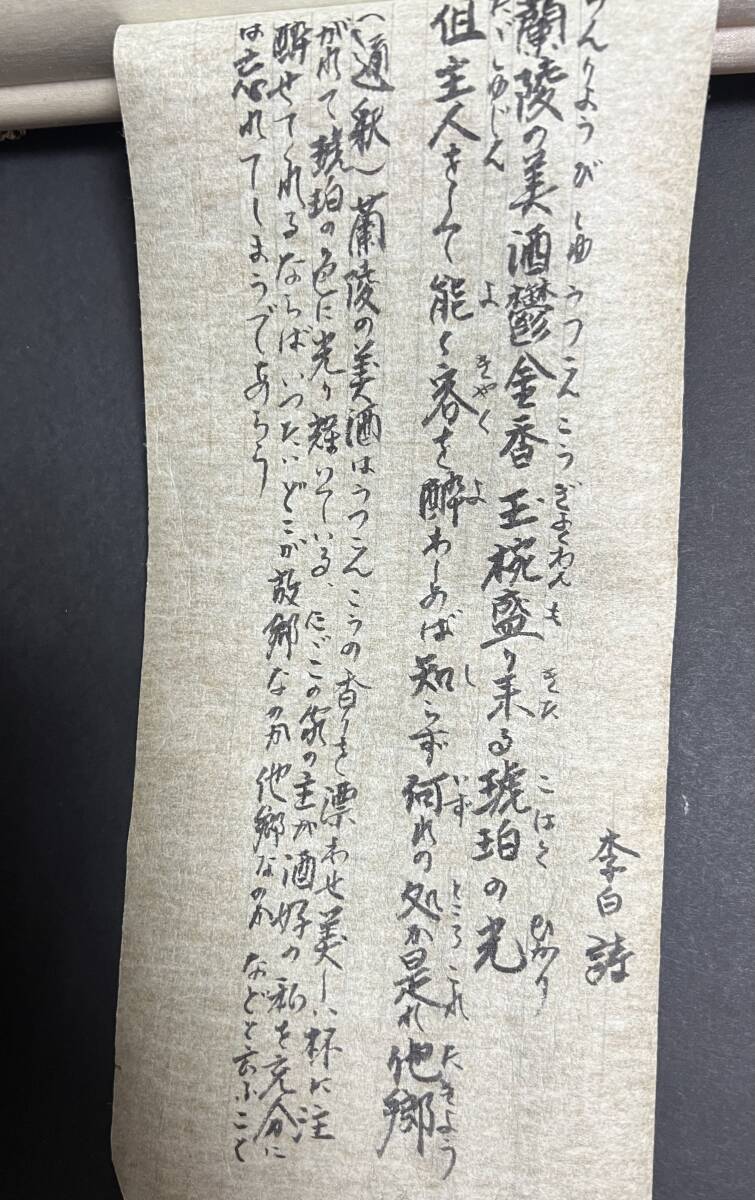 李白詩
らんりょうびしゅうつこんこうぎょくわんもきたこはくひかり
蘭陵の美酒鬱金香玉椀盛り来る琥珀の光
たゞしゅじんよきゃくよしいずれところこれたきょう
但主人をして能く客を酔わしめば知らず何れの処か是れ他郷
（通釈）蘭陵の美酒はうつこんこうの香りを漂わせ美しい杯に注
がれて琥珀の色に光り輝いている、たゞこの家の主が酒好の私を充分に
酔せてくれるならばいったいどこが故郷なのか他郷なのかなどと言ふこと
は忘れてしまうであろう